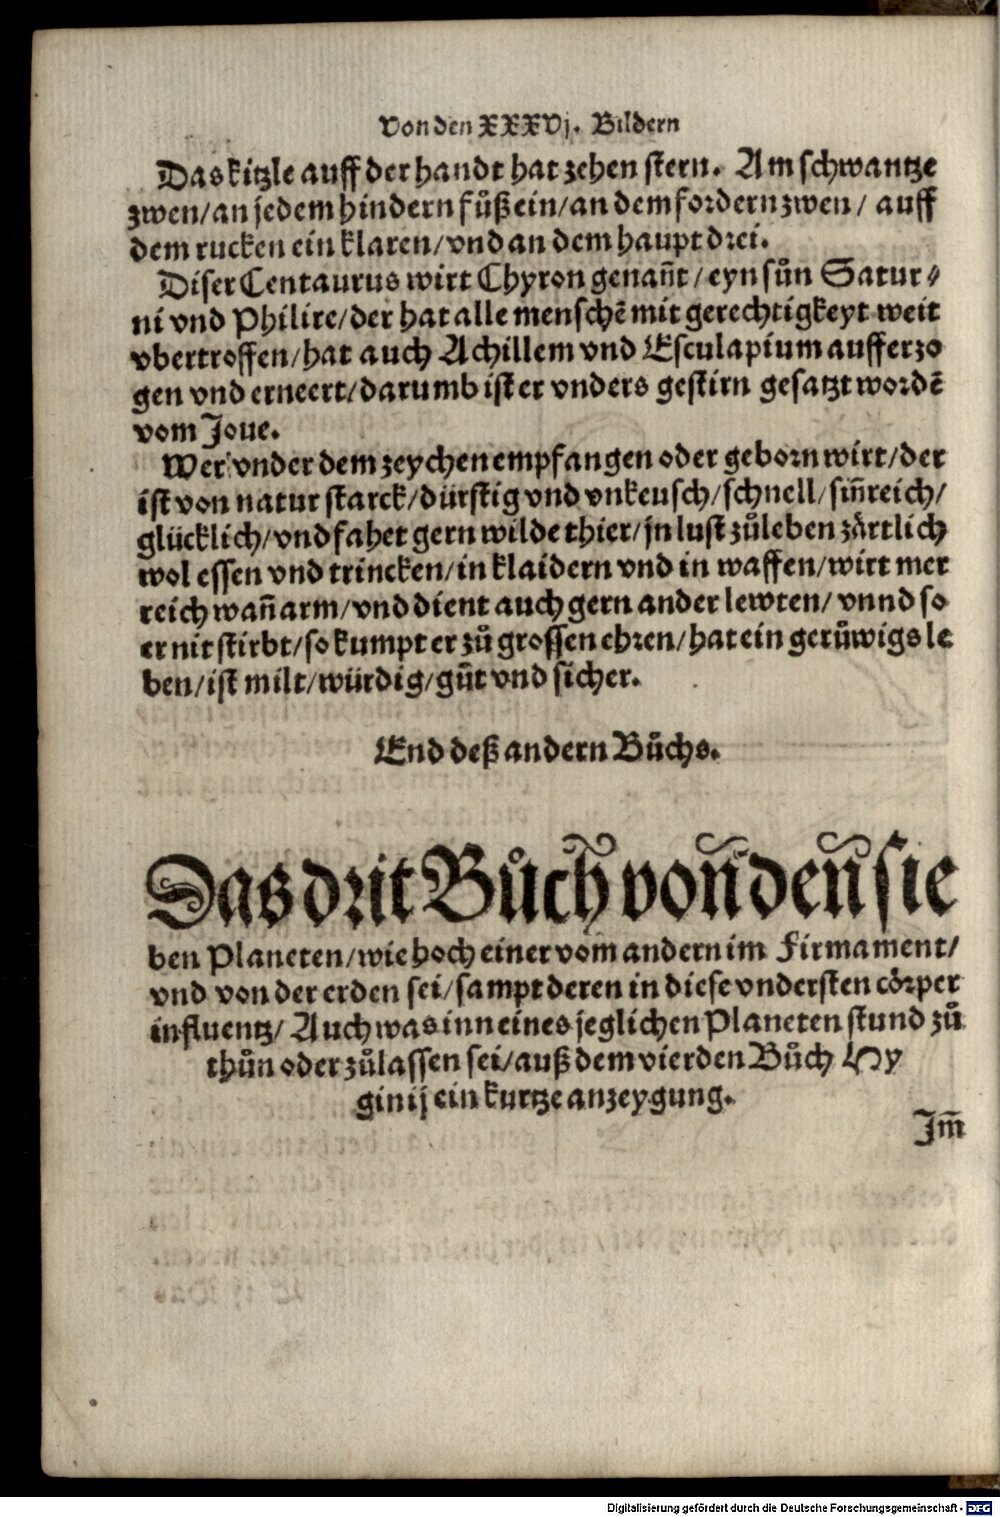 Von den XXXVj. Bildern
Das kitzle auff der handt hat zehen stern. Am schwantze
zwen/an jedem hindern fůß ein/an dem fordern zwen/ auff
dem rucken ein klaren/vnd an dem haupt drei.
Diser Centaurus wirt Chyron genañt/eyn sůn Satur⸗
ni vnd Philire/der hat alle menschẽ mit gerechtigkeyt weit
vbertroffen/hat auch Achillem vnd Esculapium aufferzo
gen vnd erneert/darumb ist er vnders gestirn gesatzt wordẽ
vom Joue.
Wer vnder dem zeychen empfangen oder geborn wirt/der
ist von natur starck/dürstig vnd vnkeusch/schnell/siñreich/
glücklich/vnd fahet gern wilde thier/jn lust zůleben zårtlich
wol essen vnd trincken/in klaidern vnd in waffen/wirt mer
reich wañ arm/vnd dient auch gern ander lewten/ vnnd so
er nit stirbt/so kumpt er zů grossen ehren/hat ein gerůwigs le
ben/ist milt/würdig/gůt vnd sicher.
End deß andern Bůchs.
Das drit Bůch von den sie
ben Planeten/wie hoch einer vom andern im Firmament/
vnd von der erden sei/sampt deren in diese vndersten cörper
influentz/ Auch was inn eines jeglichen Planeten stund zů
thůn oder zůlassen sei/auß dem vierden Bůch Hy
ginij ein kurtze anzeygung.
Jm̃
Digitalisierung gefördert durch die Deutsche Forschungsgemeinschaft - DFG